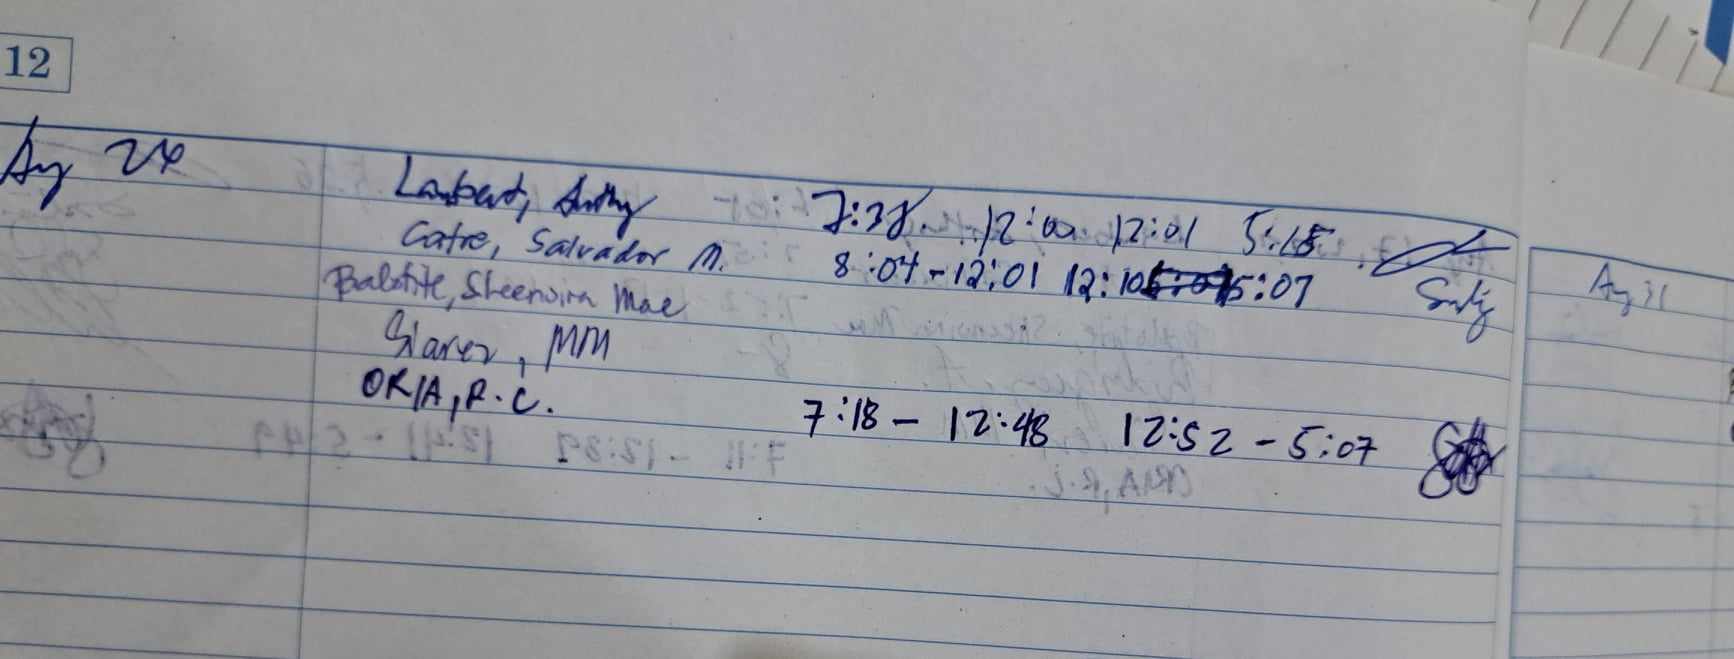 12
Aug 24
Lambert, 7:38 12:00 12:01 5:15
Catre, Salvador M. 8:04 - 12:01 12:10 5:07
Balotite, Sheenvira Mae
Siarez, MM
ORIA, R.C. 7:18 - 12:48 12:52 - 5:07
Aug 31